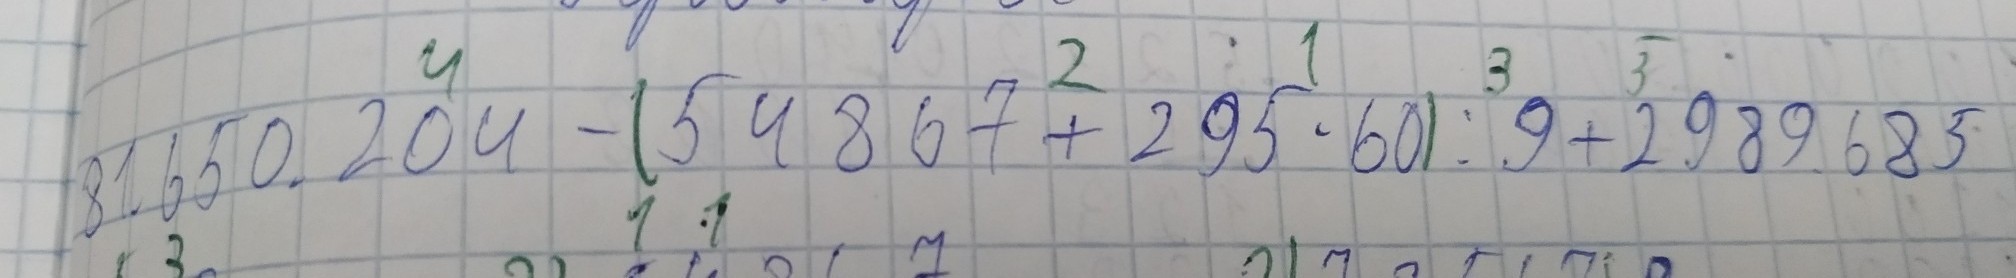 4 2 1 3 5
81.650.204 - (54867 + 295 · 60) : 9 + 2989.685
1 1
3 7